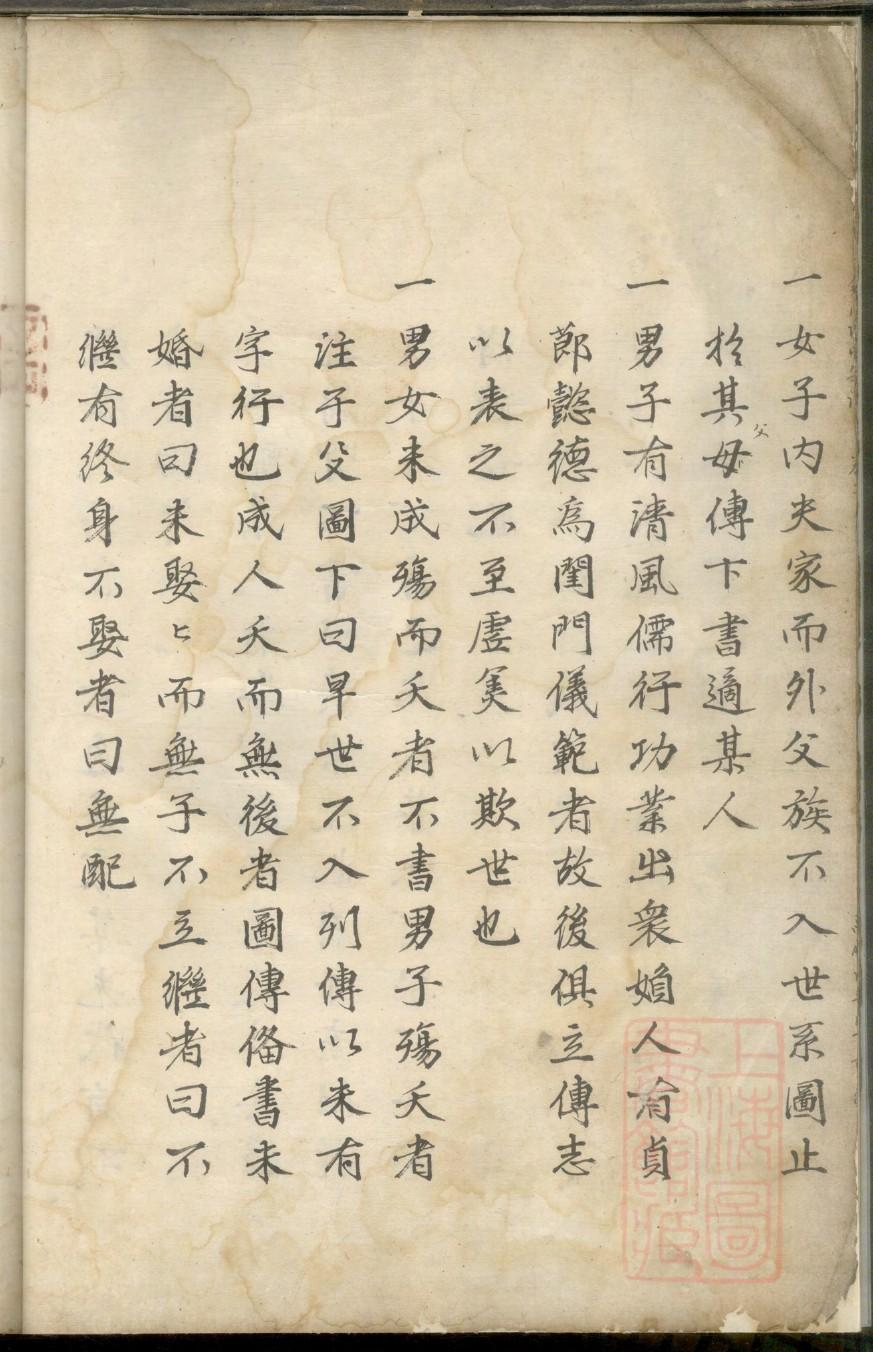 一女子内夫家而外父族不入世系圖止
於其母傳下書適某人
父
一男子有清風儒行功業出衆婦人有貞
節懿德爲閨門儀範者故後俱立傳志
以表之不至虛美以欺世也
一男女未成殤而夭者不書男子殤夭者
注于父圖下曰早世不入列傳以未有
字行也成人夭而無後者圖傳俻書未
婚者曰未娶〻而無子不立繼者曰不
繼有终身不娶者曰無配
上海圖
書館藏